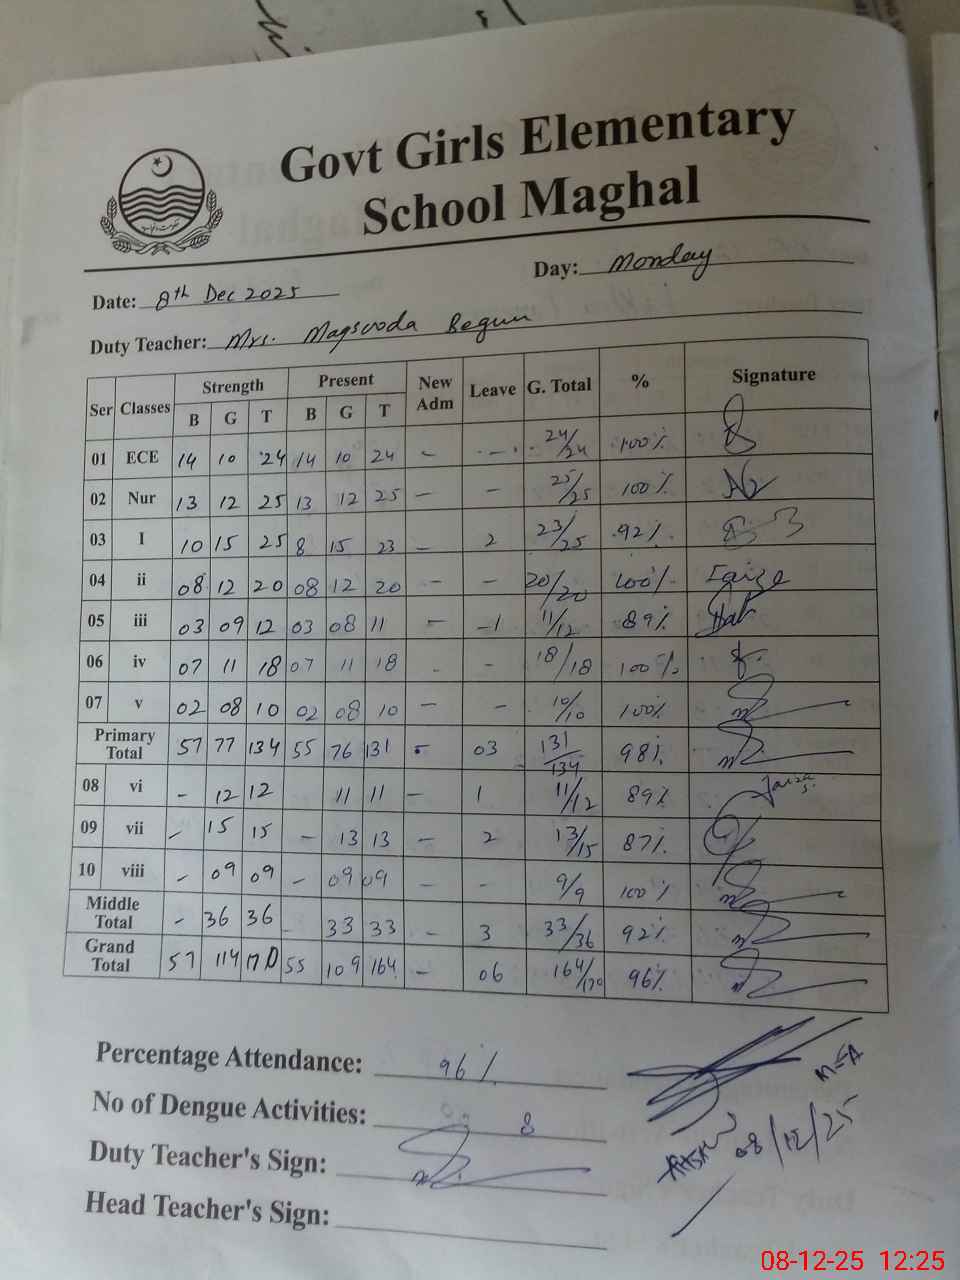 Govt Girls Elementary
School Maghal
Day: Monday
Date: 8th Dec 2025
Duty Teacher: Mrs. Maqsooda Begum
Ser Classes Strength Present New Adm Leave G. Total % Signature
B G T B G T
01 ECE 14 10 24 14 10 24 - - 24/24 100%
02 Nur 13 12 25 13 12 25 - - 25/25 100%
03 I 10 15 25 8 15 23 - 2 23/25 92%
04 ii 08 12 20 08 12 20 - - 20/20 100%
05 iii 03 09 12 03 08 11 - 1 11/12 89%
06 iv 07 11 18 07 11 18 - - 18/18 100%
07 v 02 08 10 02 08 10 - - 10/10 100%
Primary Total 57 77 134 55 76 131 - 03 131/134 98%
08 vi - 12 12 11 11 - 1 11/12 89%
09 vii - 15 15 - 13 13 - 2 13/15 87%
10 viii - 09 09 - 09 09 - - 9/9 100%
Middle Total - 36 36 - 33 33 - 3 33/36 92%
Grand Total 57 114 170 55 109 164 - 06 164/170 96%
Percentage Attendance: 96%
No of Dengue Activities: 8
Duty Teacher's Sign:
Head Teacher's Sign:
MEA
08/12/25
08-12-25 12:25